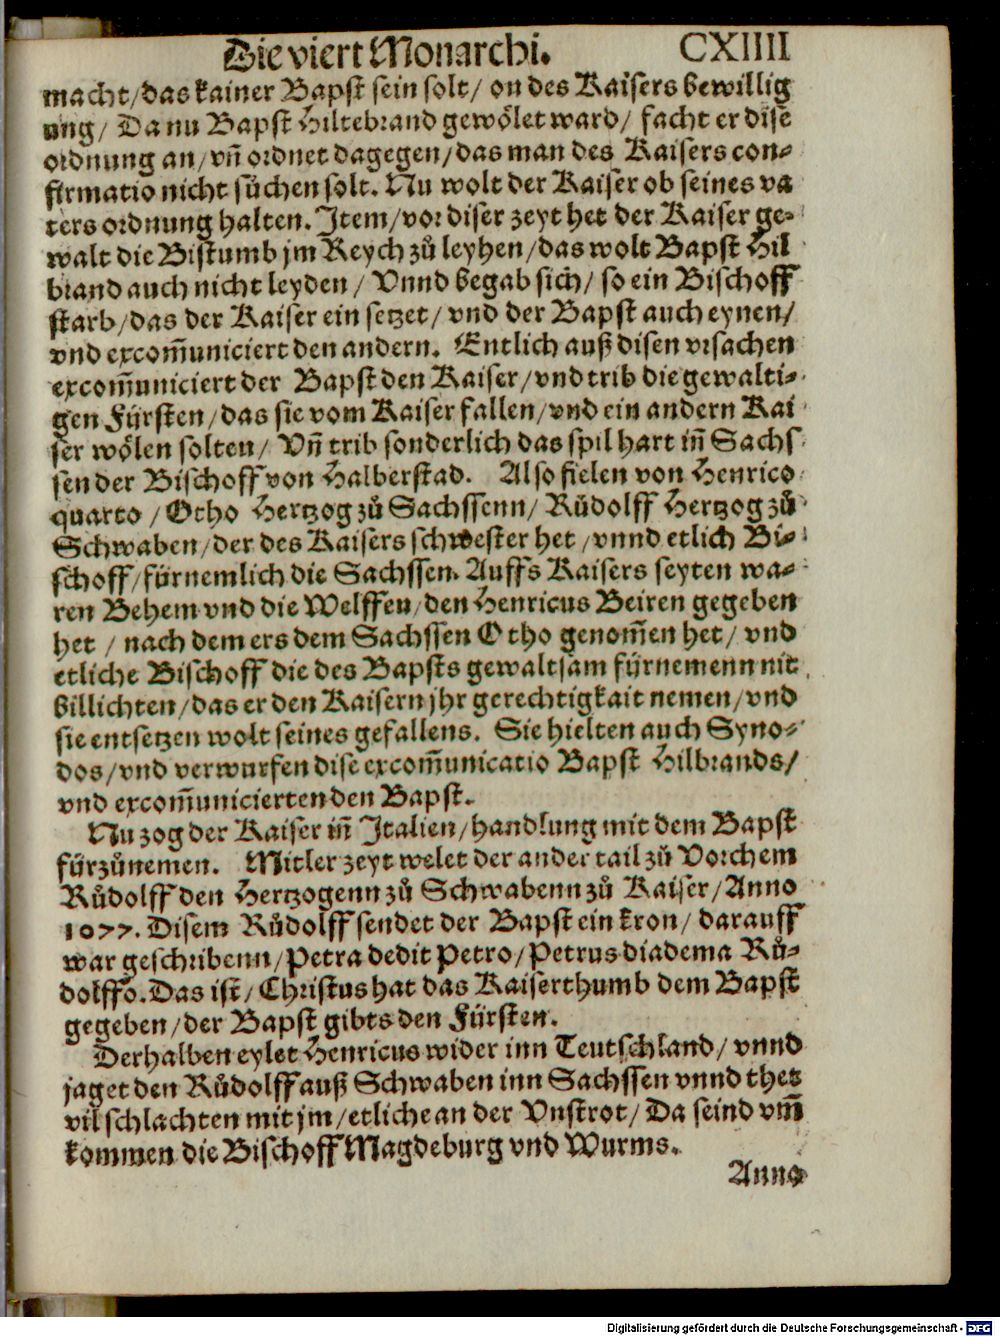 Die viert Monarchi. CXIIII
macht/das kainer Bapst sein solt/ on des Kaisers bewillig
ung/ Da nu Bapst Hiltebrand gewölet ward/ facht er dise
ordnung an/vñ ordnet dagegen/das man des Kaisers con-
firmatio nicht süchen solt. Nu wolt der Kaiser ob seines va
ters ordnung halten. Item/vor diser zeyt het der Kaiser ge-
walt die Bistumb jm Reych zů leyhen/das wolt Bapst Hil
brand auch nicht leyden/ Vnnd begab sich/ so ein Bischoff
starb/das der Kaiser ein setzet/ vnd der Bapst auch eynen/
vnd excom̃uniciert den andern. Entlich auß disen vrsachen
excom̃uniciert der Bapst den Kaiser/vnd trib die gewalti-
gen Fürsten/das sie vom Kaiser fallen/vnd ein andern Kai
ser wölen solten/ Vñ trib sonderlich das spil hart iñ Sachs
sen der Bischoff von Halberstad. Also fielen von Henrico
quarto/Otho Hertzog zů Sachssenn/ Růdolff Hertzog zů
Schwaben/der des Kaisers schwester het/vnnd etlich Bi-
schoff/fürnemlich die Sachssen. Auffs Kaisers seyten wa-
ren Behem vnd die Welffen/den Henricus Beiren gegeben
het / nach dem ers dem Sachssen Otho genom̃en het/ vnd
etliche Bischoff die des Bapsts gewaltsam fürnemenn nit
billichten/das er den Kaisern jhr gerechtigkait nemen/vnd
sie entsetzen wolt seines gefallens. Sie hielten auch Syno-
dos/vnd verwurfen dise excom̃unicatio Bapst Hilbrands/
vnd excom̃unicierten den Bapst.
Nu zog der Kaiser iñ Italien/handlung mit dem Bapst
fürzůnemen. Mitler zeyt welet der ander tail zů Vorchem
Růdolff den Hertzogenn zů Schwabenn zů Kaiser/Anno
1077. Disem Růdolff sendet der Bapst ein kron/ darauff
war geschribenn/Petra dedit Petro/Petrus diadema Rů-
dolffo. Das ist/Christus hat das Kaiserthumb dem Bapst
gegeben/der Bapst gibts den Fürsten.
Derhalben eylet Henricus wider inn Teutschland/ vnnd
jaget den Růdolff auß Schwaben inn Sachssen vnnd thet
vil schlachten mit jm/etliche an der Vnstrot/ Da seind vm̃
kommen die Bischoff Magdeburg vnd Wurms.
Anno
Digitalisierung gefördert durch die Deutsche Forschungsgemeinschaft - DFG